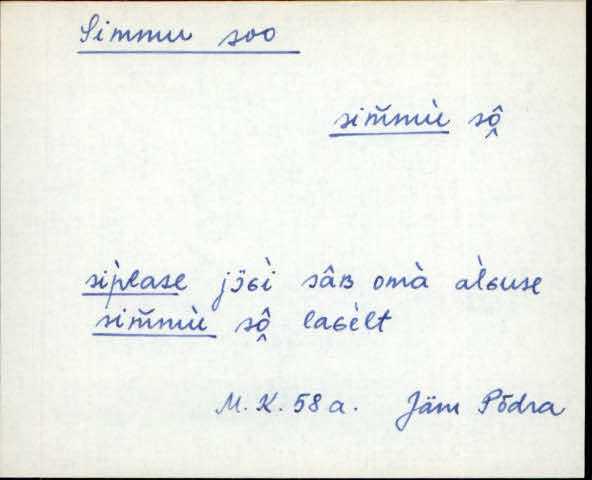 Simmu soo
sim̆mù sô̭
sìplase jɔ̈ɢì sâʙ omà àlɢuse
sim̆mù sô̭ laɢèlt
M. K. 58a. Jäm Põdra